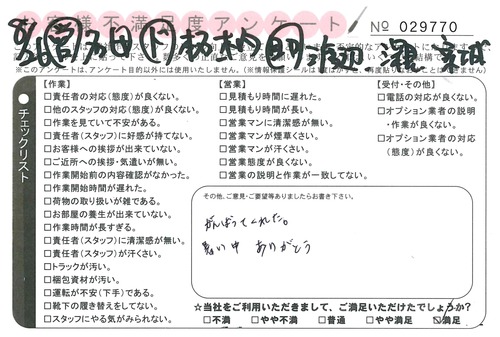 お客様不満足度アンケート
No 029770
※このアンケートは、アンケート目的以外には使用いたしません。
チェックリスト
【作業】
□責任者の対応(態度)が良くない。
□他のスタッフの対応(態度)が良くない。
□作業を見ていて不安がある。
□責任者(スタッフ)に好感が持てない。
□お客様への挨拶が出来ていない。
□ご近所への挨拶・気遣いが無い。
□作業開始前の内容確認がなかった。
□作業開始時間が遅れた。
□荷物の取り扱いが雑である。
□お部屋の養生が出来ていない。
□作業時間が長すぎる。
□責任者(スタッフ)に清潔感が無い。
□責任者(スタッフ)が汗くさい。
□トラックが汚い。
□梱包資材が汚い。
□運転が不安(下手)である。
□靴下の履き替えをしてない。
□スタッフにやる気がみられない。
【営業】
□見積時間に遅れた。
□見積もり時間が長い。
□営業マンに清潔感が無い。
□営業マンが煙草くさい。
□営業マンが汗くさい。
□営業態度が良くない。
□営業の説明と作業が一致してない。
【受付・その他】
□電話の対応が良くない。
□オプション業者の説明
・作業が良くない。
□オプション業者の対応
(態度)が良くない。
その他、ご意見・ご要望等ありましたらお書き下さい。
がんばってくれた。
暑い中 ありがとう
☆当社をご利用いただきまして、ご満足いただけたでしょうか?
□不満 □やや不満 □普通 □やや満足 ☑満足